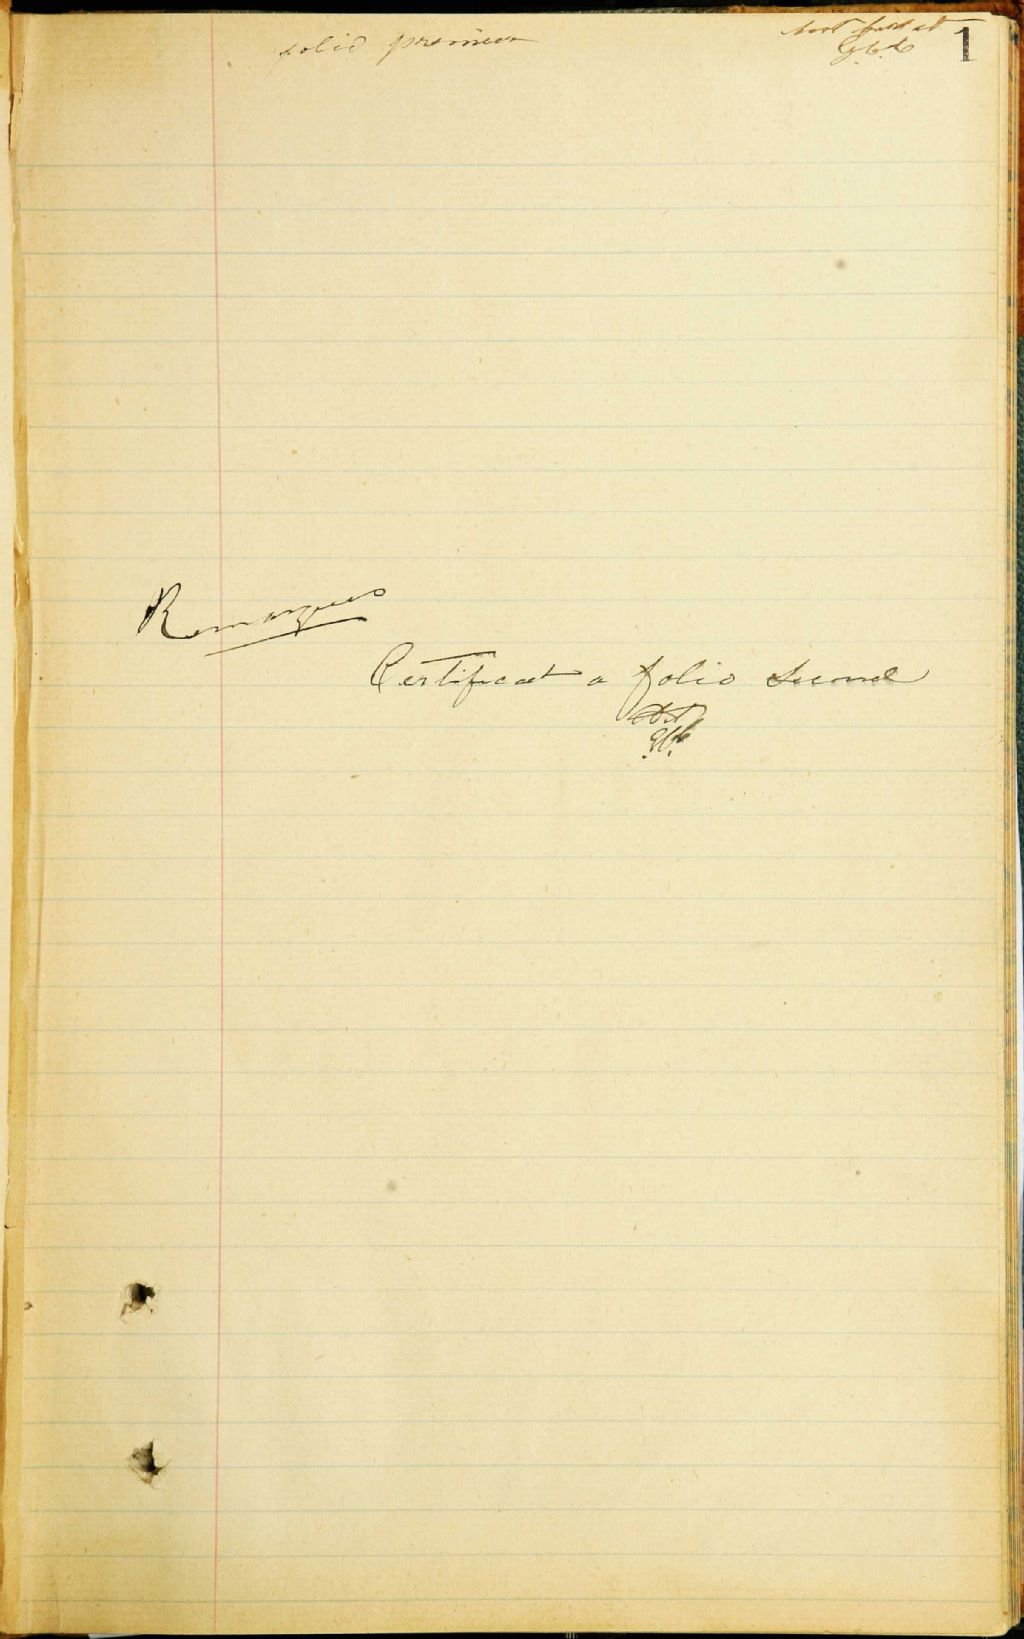 folio premier
1
Remarques
Certificat a folio second